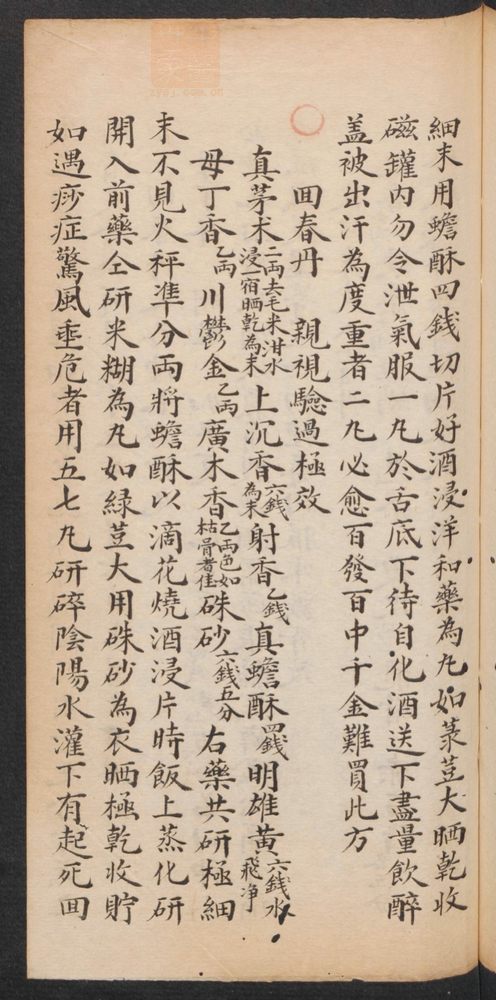 細末用蟾酥四錢切片好酒浸洋和藥為丸如菉荳大晒乾收
磁罐内勿令泄氣服一丸於舌底下待自化酒送下盡量飲醉
盖被出汗為度重者二丸必愈百發百中千金難買此方
囬春丹 親視驗過極效
真茅术二両去毛米泔水浸一宿晒乾為末上沉香六錢為末射香乙錢真蟾酥四錢明雄黃六錢水飛净
母丁香乙両川鬱金乙両廣木香乙両色如枯骨者佳硃砂六錢五分右藥共研極細
末不見火秤準分両將蟾酥以滴花燒酒浸片時飯上蒸化研
開入前藥仝研米糊為丸如緑荳大用硃砂為衣晒極乾收貯
如遇痧症驚風垂危者用五七丸研碎陰陽水灌下有起死囬